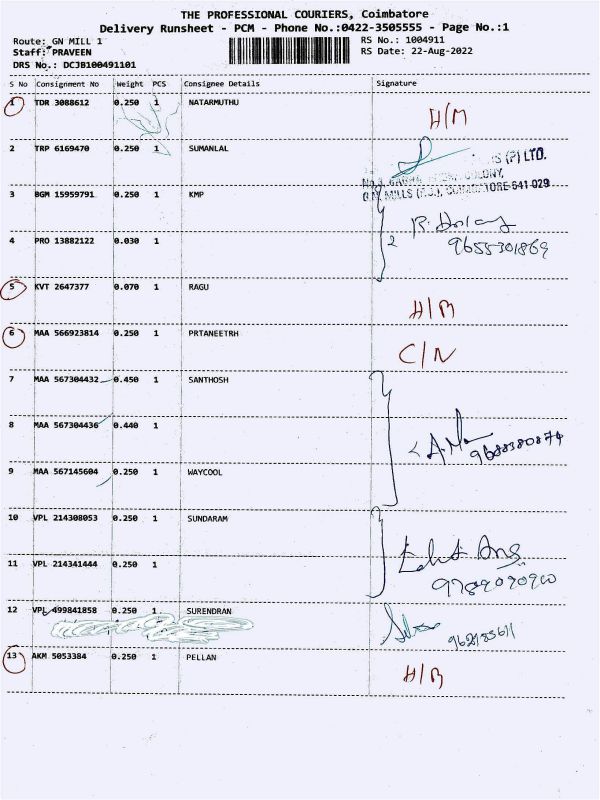 THE PROFESSIONAL COURIERS, Coimbatore
Delivery Runsheet - PCM - Phone No.:0422-3505555 - Page No.:1
Route: GN MILL 1 RS No.: 1004911
Staff: PRAVEEN RS Date: 22-Aug-2022
DRS No.: DCJB100491101
S No Consignment No Weight PCS Consignee Details Signature
1 TDR 3088612 0.250 1 NATARMUTHU
H/M
2 TRP 6169470 0.250 1 SUMANLAL
(P) LTD.
COLONY,
G.N. MILLS (P.O.), COIMBATORE-641 029
3 BGM 15959791 0.250 1 KMP
2
9655301869
4 PRO 13882122 0.030 1
5 KVT 2647377 0.070 1 RAGU
H/M
6 MAA 566923814 0.250 1 PRTANEETRH
C/N
7 MAA 567304432 0.450 1 SANTHOSH
8 MAA 567304436 0.440 1
9688380874
9 MAA 567145604 0.250 1 WAYCOOL
10 VPL 214308053 0.250 1 SUNDARAM
11 VPL 214341444 0.250 1
9789090900
12 VPL 499841858 0.250 1 SURENDRAN
13 AKM 5053384 0.250 1 PELLAN
H/M